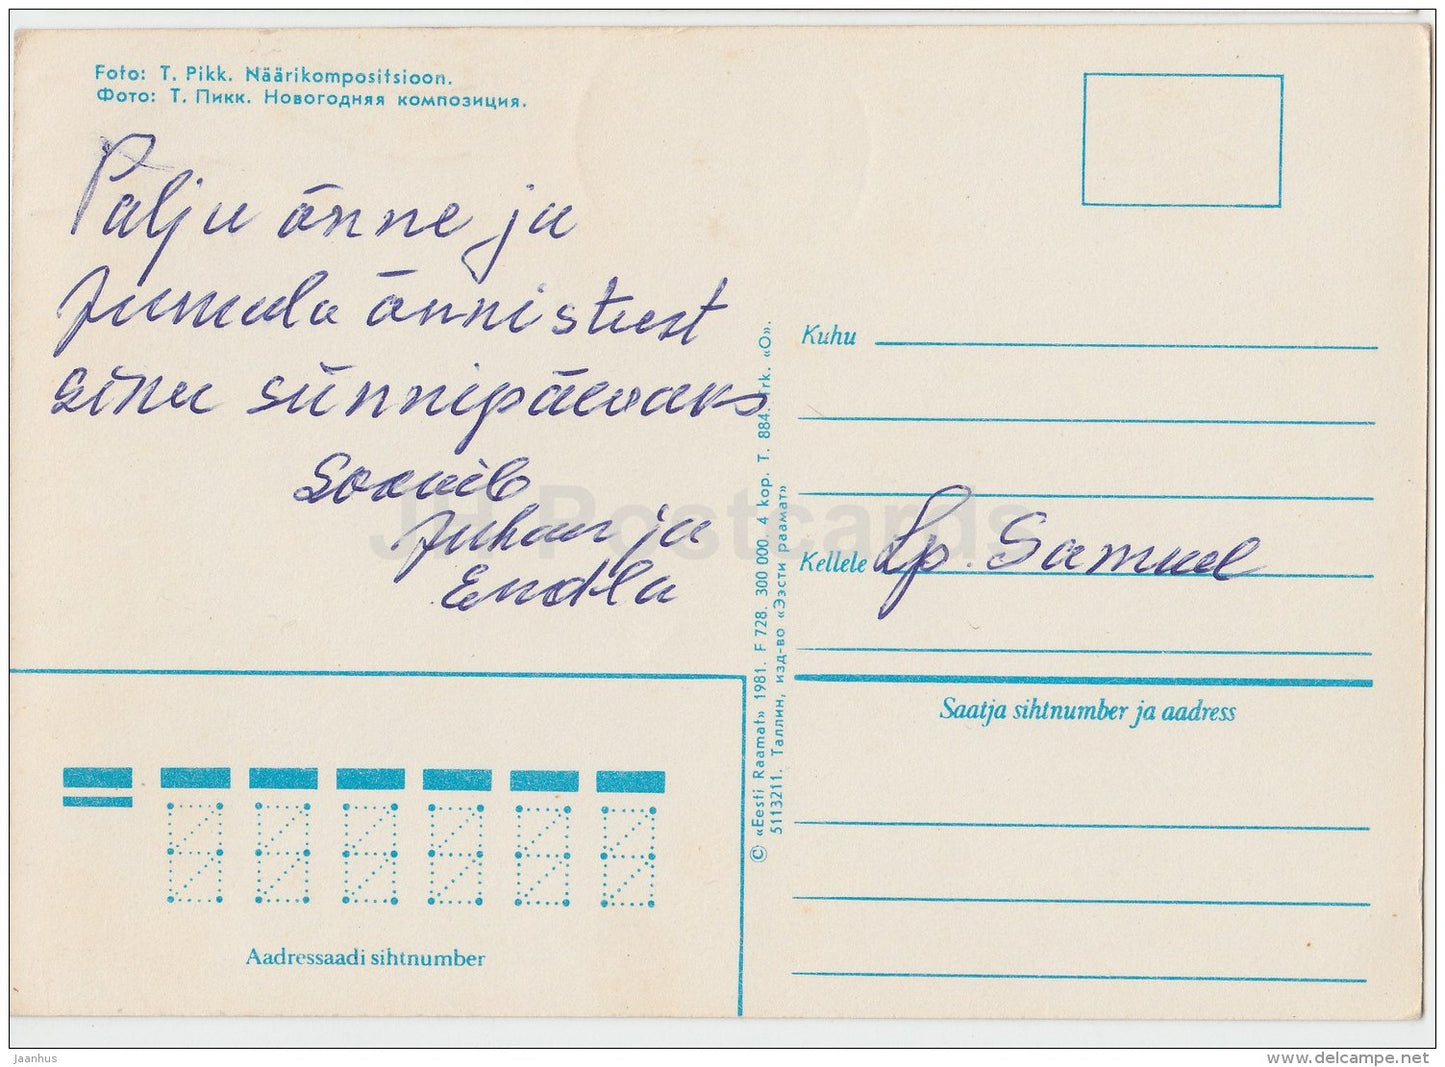 Foto: T. Pikk. Näärikompositsioon.
Фото: Т. Пикк. Новогодняя композиция.
Palju õnne ja
Jumala õnnistust
sinu sünnipäevaks
soovib
Juhan ja
Endla
Kuhu
Kellele Lp. Samuel
Saatja sihtnumber ja aadress
Aadressaadi sihtnumber
© «Eesti Raamat» 1981. F 728. 300 000. 4 kop. T. 884. Trk. «O».
5113211. Таллин, изд-во «Ээсти раамат»
JH Postcards
jaanhus
www.delcampe.net